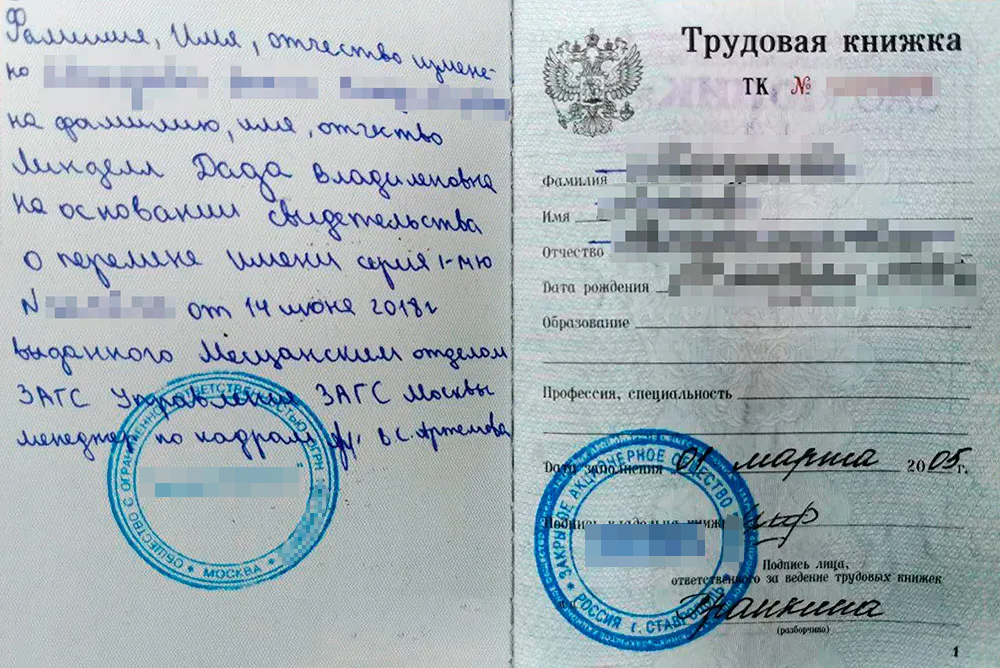 Фамилия, Имя, отчество измене-
но
на фамилию, имя, отчество
Линделл Дада Владиленовна
на основании свидетельства
о перемене имени серия I-МЮ
N от 14 июня 2018г
выданного Мещанским отделом
ЗАГС Управления ЗАГС Москвы
менеджер по кадрам В.С. Артемова
ОБЩЕСТВО С ОГРАНИЧЕННОЙ ОТВЕТСТВЕННОСТЬЮ ОГРН
МОСКВА
Трудовая книжка
ТК №
Фамилия
Имя
Отчество
Дата рождения
Образование
Профессия, специальность
Дата заполнения 01 марта 2005г.
Подпись владельца книжки
Подпись лица,
ответственного за ведение трудовых книжек
Франкина
(разборчиво)
ЗАКРЫТОЕ АКЦИОНЕРНОЕ ОБЩЕСТВО
РОССИЯ г. СТАВРОПОЛЬ
1